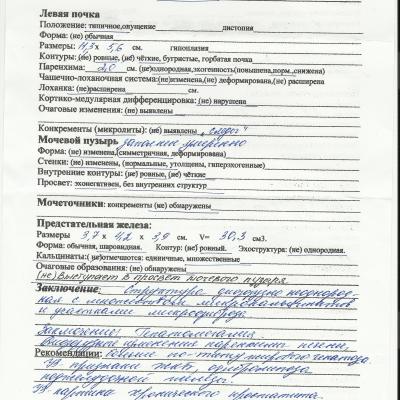 Левая почка
Положение: типичное,опущение дистопия
Форма: (не) обычная
Размеры: 11,3 х 5,6 см. гипоплазия
Контуры: (не) ровные, (не) чёткие, бугристые, горбатая почка
Паренхима: 2,0 см. (не)однородная,эхогенность(повышена,норм.,снижена)
Чашечно-лоханочная система:(не)изменена,(не) деформирована,(не) расширена
Лоханка: (не)расширена см.
Кортико-медуларная дифференцировка: (не) нарушена
Очаговые изменения: (не) выявлены
Конкременты (микролиты): (не) выявлены
Мочевой пузырь заполнен умеренно
Форма: (не) изменена,(симметричная, деформирована)
Стенки: (не) изменены, (нормальные, утолщены, гиперэхогенные)
Внутренние контуры: (не) ровные, (не) чёткие
Просвет: эхонегативен, без внутренних структур
Мочеточники: (не) обнаружены
Предстательная железа:
Размеры 3,7 х 4,2 х 3,9 см. V= 30,3 см3.
Форма: обычная, шаровидная. Контур: (не) ровный. Эхоструктура: (не) однородная.
Кальцинаты:(не)отмечаются: единичные, множественные
Очаговые образования: (не) обнаружены
(не) Выступает в просвет мочевого пузыря
Заключение: Структура диффузно неоднород-
ная с множеством микрокальцинатов
и участками микрофиброза
Заключение: Гепатомегалия.
Диффузные изменения паренхимы печени,
Рекомендации: более по-типу жирового гепатоза.
УЗ признаки ЖКБ,
поджелудочной железы.
УЗ картина хронического простатита.